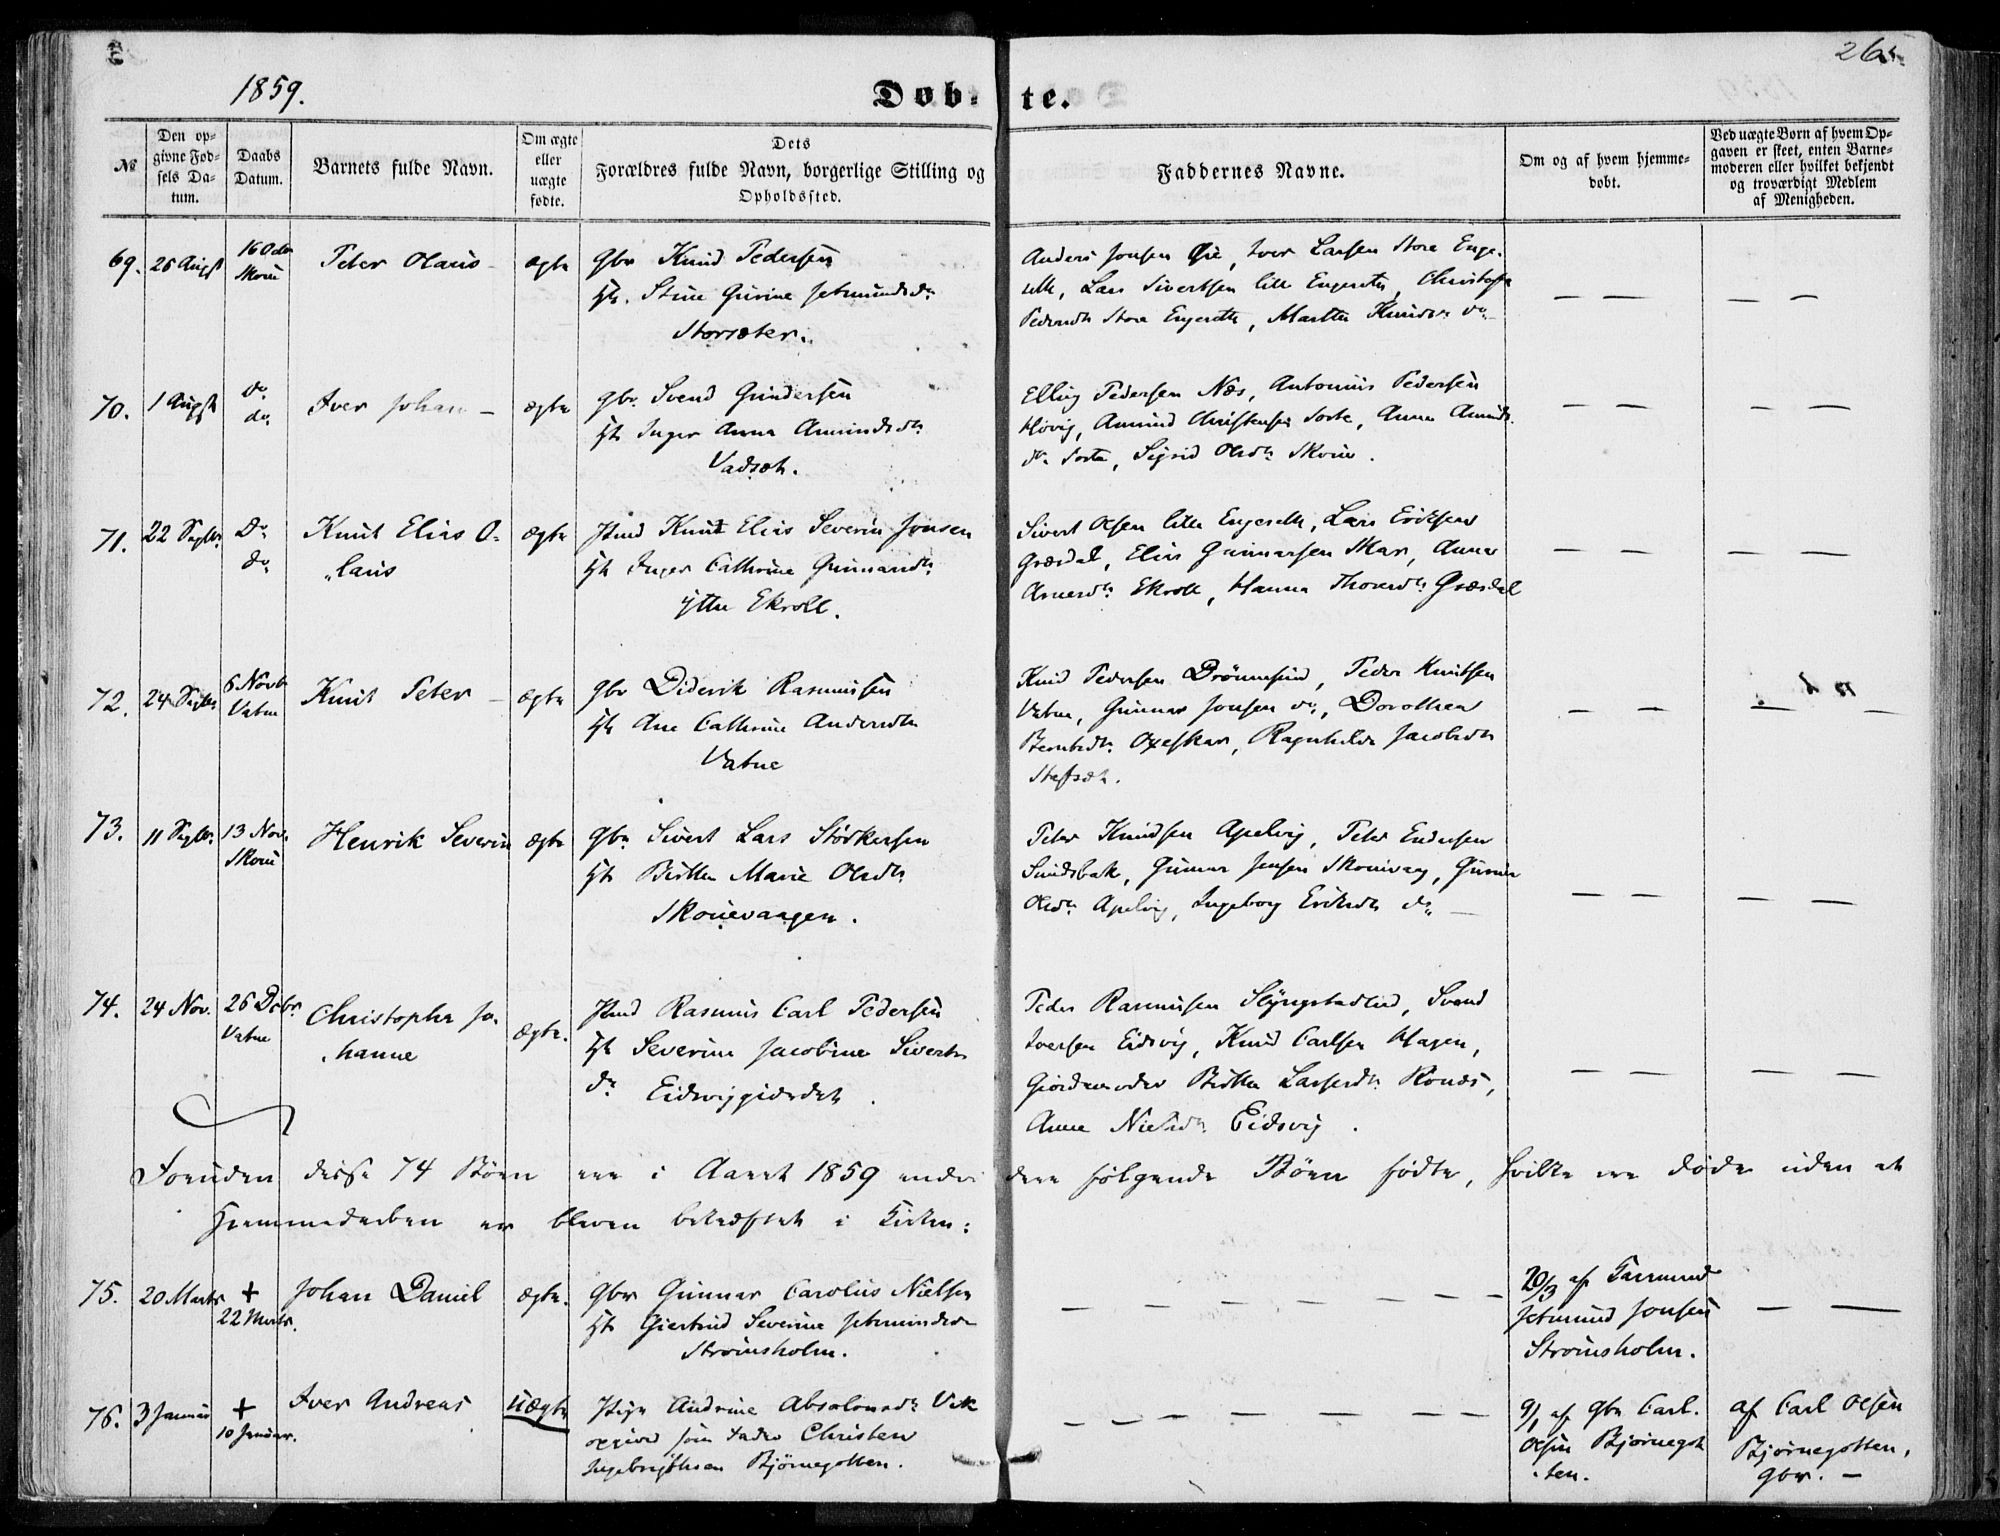 1859.
Døbte.
265
№
Den opgivne Fødsels Datum.
Daabs Datum.
Barnets fulde Navn.
Om ægte eller uægte fødte.
Dets Forældres fulde Navn, borgerlige Stilling og Opholdssted.
Faddernes Navne.
Om og af hvem hjemmedøbt.
Ved uægte Børn af hvem Opgaven er skeet, enten Barnemoderen eller hvilket bekjendt og troværdigt Medlem af Menigheden.
69. 25 Augst
16 Octbr
Skoue
Peter Olaus -
ægte
Gbr Knud Pedersen
H. Stine Gurine Jetmundsdr
Storsæter.
Anders Jonsen Øie, Iver Larsen Store Enge-
seth, Lars Sivertsen lille Engeseth,
Pedersdtr Store Engeseth, Marthe Knudsdr do
— — — —
70. 1 Augst
do
do
Iver Johan -
ægte
Gbr. Svend Gundersen
H Inger Anna Amundsdtr
Vadset.
Elling Pedersen Næs, Antonius Pedersen
Høvig, Amund Christensen Sorte, Anna Amunds-
dr Sorte, Sigrid Olsdtr Skoue.
— — — —
71. 22 Septbr.
Do
do
Knut Elias O-
laus
ægte
Hmd Knut Elias Severin Jonsen
H Inger Cathrine Gunnarsdtr
ytter Ekroll.
Sivert Olsen lille Engeseth, Lars Eriksen
Græsdal, Elias Gunnarsen Skar, Anna
Arnesdtr Ekroll, Hanna Thoresdtr Græsdal
— — — —
72. 24 Septbr
6 Novb
Vatne
Knut Peter -
ægte
Gbr Diderik Rasmussen
H Ane Cathrine Andersdtr
Vatne
Knud Pedersen Drønnesund, Peder Knutsen
Vatne, Gunnar Jonsen do, Dorothea
Berntsdtr Oxeskar, Ragnhilde Jacobsdtr
— — — —
73. 11 Septbr.
13 Nov.
Skoue
Henrik Severin
ægte
Gbr. Sivert Lars Størkersen
H Birthe Marie Olsdtr
Skouevaagen.
Peter Knudsen Apelvig, Peter Endresen
Sundsbak, Gunnar Jensen Skouevaag, Gurine
Olsdtr Apelvig, Ingeborg Eriksdtr do -
— — — —
74. 24 Nov.
26 Debr.
Vatne
Christophe Jo-
hanne
ægte.
Hmd Rasmus Carl Pedersen
H Severine Jacobine Siverts
dr Eidsviggjerdet.
Peder Rasmussen Slyngstadlid, Svend
Iversen Eidsvig, Knud Carlsen Hagen,
Giordemoder Birthe Larsesdtr Rones,
Anne Nielsdtr Eidsvig.
— — — —
Foruden disse 74 Børn ere i Aaret 1859 endvidere følgende Børn fødte, hvilke ere døde uden at
Hjemmedaaben er bleven bekræftet i Kirken:
75. 20 Marts
+
22 Marts.
Johan Daniel
ægte.
Gbr Gunnar Carolus Nielsen
H Giertrud Severine Jetmundsdr
Strømsholm.
— — — — — — — —
20/3 af Formand
Jetmund Jonsen
Strømsholm.
— —
76. 3 Januar
+
10 Januar.
Iver Andreas
uægte
Pige Andrine Absolonsdtr Vik
opgiver som Fader Christen
Ingebrigtsen Bjørnegotten.
— — — — — — — —
9/1 af Gbr Carl
Olsen Bjørnegot-
ten.
af Carl Olsen
Bjørnegotten,
Gbr. -